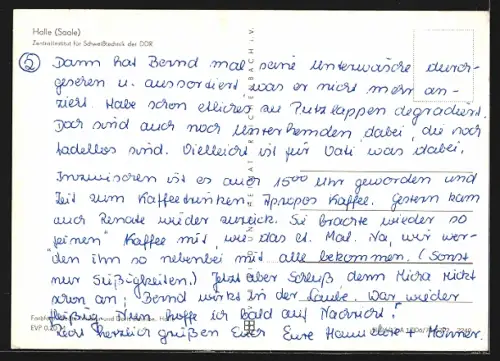 Halle (Saale)
Zentralinstitut für Schweißtechnik der DDR
⑤ Dann hat Bernd mal seine Unterwäsche durch-
gesehen u. aussortiert was er nicht mehr an-
zieht. Habe schon etliches zu Putzlappen degradiert.
Doch sind auch noch Unterhemden dabei, die noch
tadellos sind. Vielleicht ist für Vati was dabei.
Inzwischen ist es auch 15⁰⁰ Uhr geworden und
Zeit zum Kaffeetrinken. Apropos Kaffee. Gestern kam
auch Renate wieder zurück. Sie brachte wieder so
"feinen" Kaffee mit, wie das Mal. Na, wir wer-
den ihn so nebenbei mit alle bekommen. (Sonst
nur Süßigkeiten.) Jetzt aber Schluß denn Micha rückt
schon an; Bernd wirkt in der Laube. War wieder
fleißig. Nun hoffe ich bald auf Nachricht!
herzlich grüßen Euch Eure Hannelore + Männer.
EVP 0,20 M